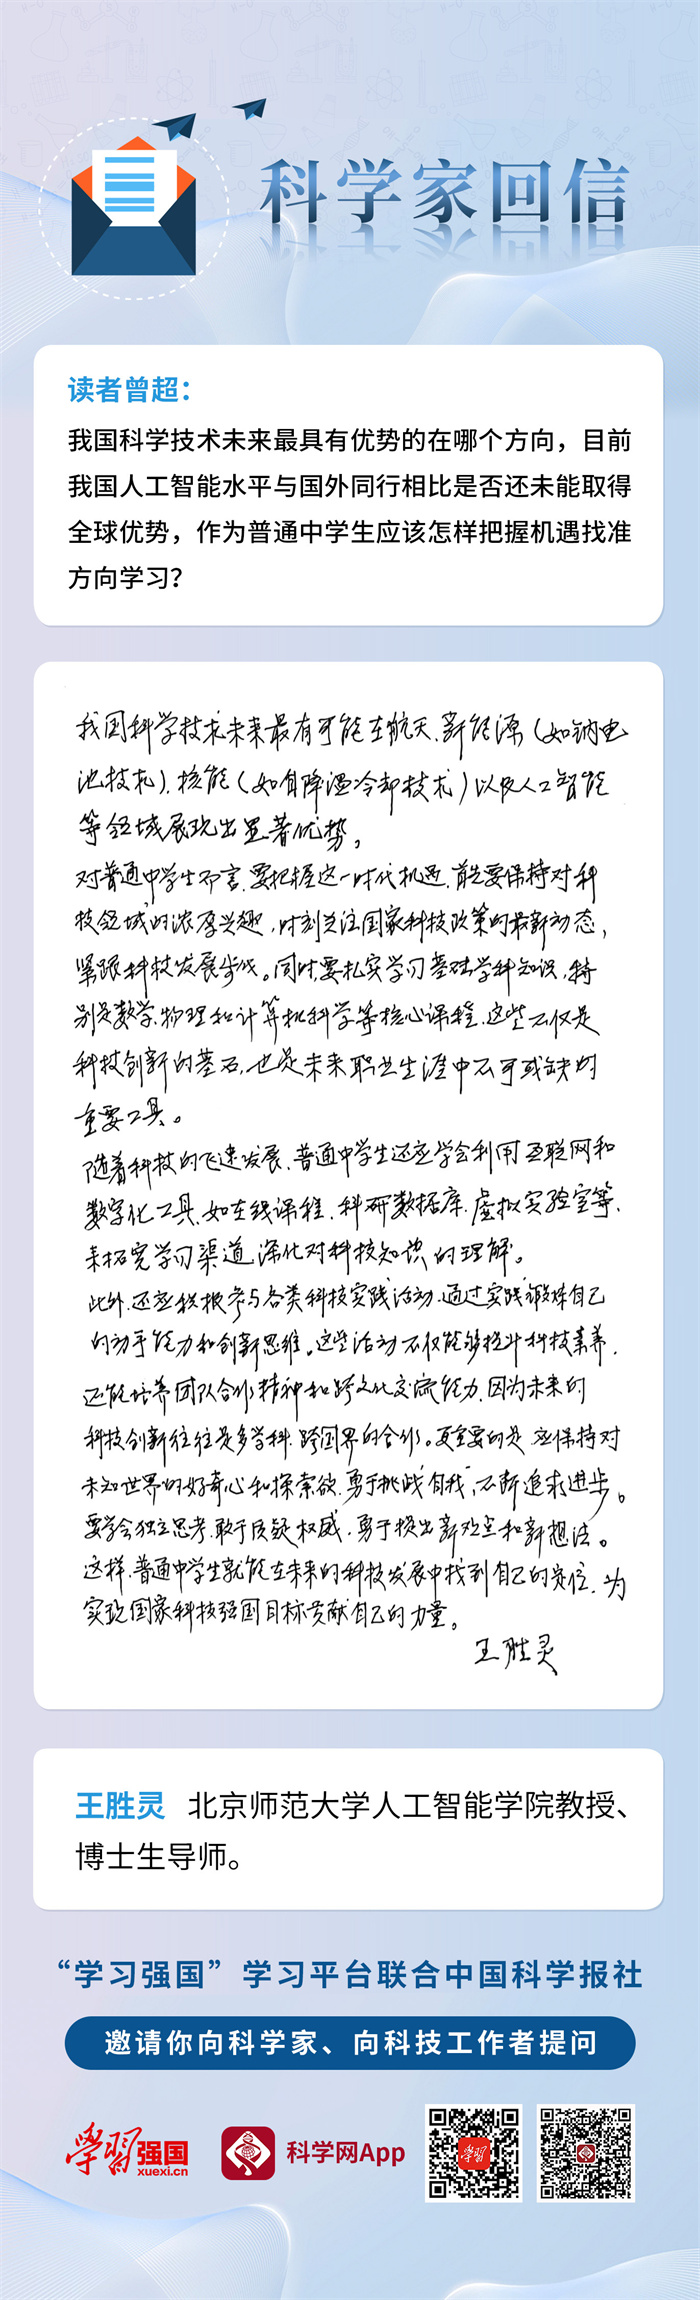 科学家回信
读者曾超：
我国科学技术未来最具有优势的在哪个方向，目前
我国人工智能水平与国外同行相比是否还未能取得
全球优势，作为普通中学生应该怎样把握机遇找准
方向学习？
我国科学技术未来最有可能在航天、新能源（如钠电
池技术）、核能（如自降温冷却技术）以及人工智能
等领域展现出显著优势。
对普通中学生而言，要把握这一时代机遇，首先要保持对科
技领域的浓厚兴趣，时刻关注国家科技政策的最新动态，
紧跟科技发展步伐。同时，要扎实学习基础学科知识，特
别是数学、物理和计算机科学等核心课程，这些不仅是
科技创新的基石，也是未来职业生涯中不可或缺的
重要工具。
随着科技的飞速发展，普通中学生还应学会利用互联网和
数字化工具，如在线课程、科研数据库、虚拟实验室等，
来拓宽学习渠道，深化对科技知识的理解。
此外，还应积极参与各类科技实践活动，通过实践锻炼自己
的动手能力和创新思维。这些活动不仅能够提升科技素养，
还能培养团队合作精神和跨文化交流能力，因为未来的
科技创新往往是多学科、跨国界的合作。更重要的是，应保持对
未知世界的好奇心和探索欲，勇于挑战自我，不断追求进步。
要学会独立思考，敢于质疑权威，勇于提出新观点和新想法。
这样，普通中学生就能在未来的科技发展中找到自己的定位，为
实现国家科技强国目标贡献自己的力量。
王胜灵
王胜灵 北京师范大学人工智能学院教授、
博士生导师。
“学习强国”学习平台联合中国科学报社
邀请你向科学家、向科技工作者提问
學習强国
xuexi.cn
科学网App
學習